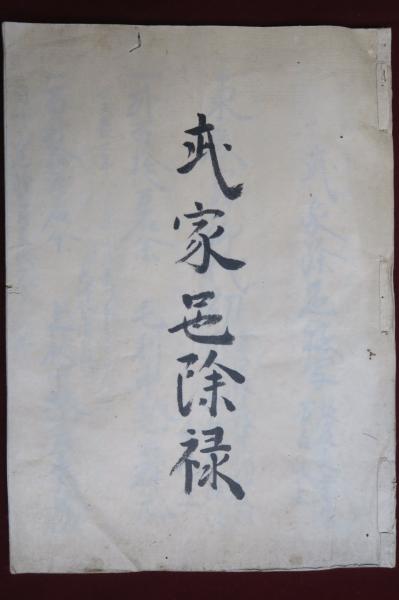 武家邑除禄